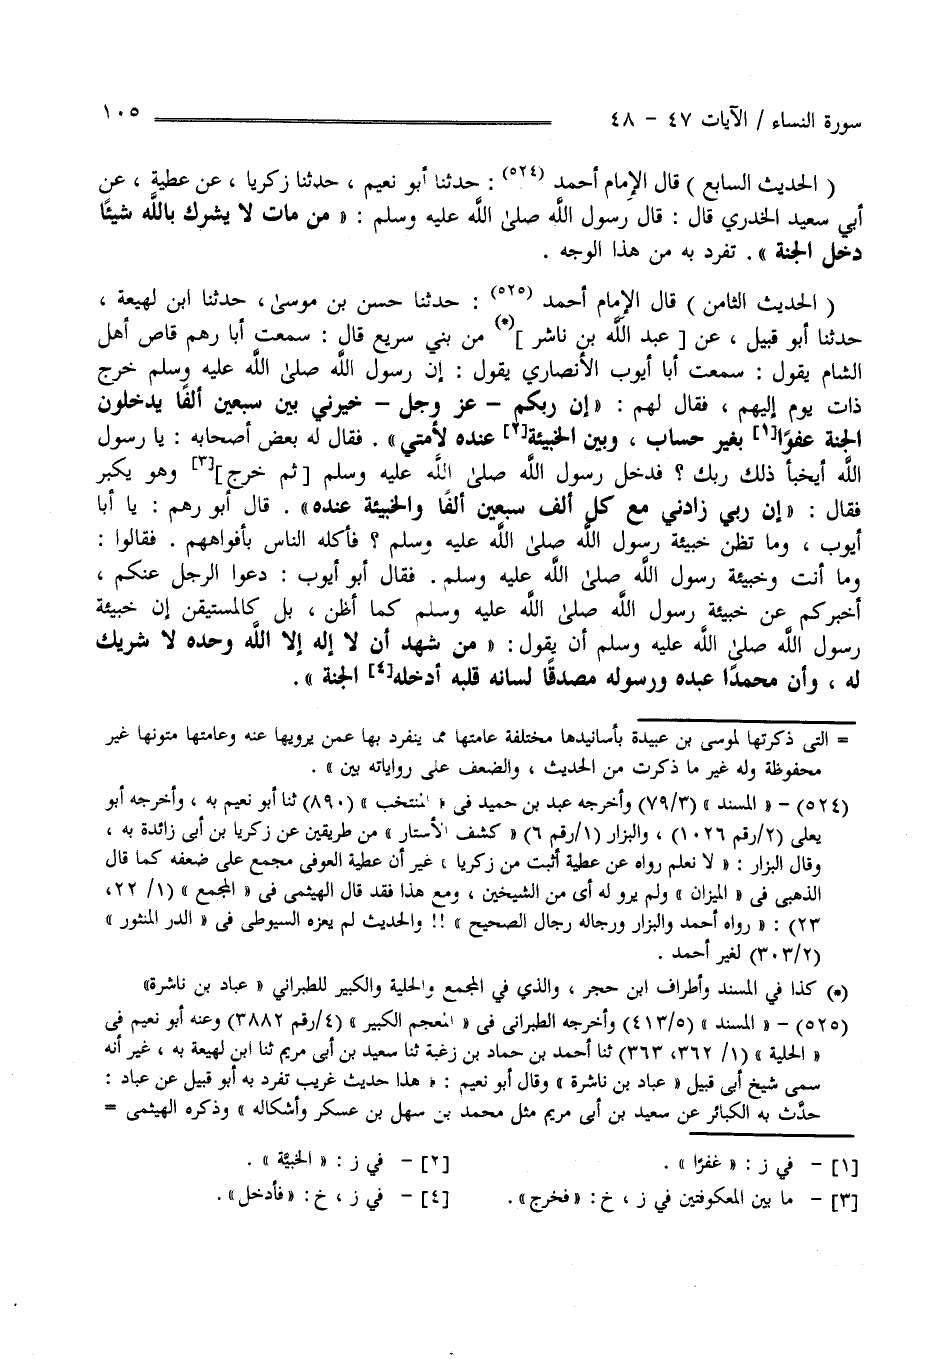 سورة النساء / الآيات ٤٧ - ٤٨ ١٠٥
( الحديث السابع ) قال الإمام أحمد (٥٢٤) : حدثنا أبو نعيم ، حدثنا زكريا ، عن عطية ، عن
أبي سعيد الخدري قال : قال رسول الله صلى الله عليه وسلم : « من مات لا يشرك بالله شيئًا
دخل الجنة » . تفرد به من هذا الوجه .
( الحديث الثامن ) قال الإمام أحمد (٥٢٥) : حدثنا حسن بن موسى ، حدثنا ابن لهيعة ،
حدثنا أبو قبيل ، عن [ عبد الله بن ناشر ](*) من بني سريع قال : سمعت أبا رهم قاص أهل
الشام يقول : سمعت أبا أيوب الأنصاري يقول : إن رسول الله صلى الله عليه وسلم خرج
ذات يوم إليهم ، فقال لهم : « إن ربكم - عز وجل - خيرني بين سبعين ألفًا يدخلون
الجنة عفوًا[١] بغير حساب ، وبين الخبيئة[٢] عنده لأمتي » . فقال له بعض أصحابه : يا رسول
الله أيخبأ ذلك ربك ؟ فدخل رسول الله صلى الله عليه وسلم [ثم خرج][٣] وهو يكبر
فقال : « إن ربي زادني مع كل ألف سبعين ألفًا والخبيئة عنده» . قال أبو رهم : يا أبا
أيوب ، وما تظن خبيئة رسول الله صلى الله عليه وسلم ؟ فأكله الناس بأفواههم . فقالوا :
وما أنت وخبيئة رسول الله صلى الله عليه وسلم. فقال أبو أيوب : دعوا الرجل عنكم ،
أخبركم عن خبيئة رسول الله صلى الله عليه وسلم كما أظن ، بل كالمستيقن إن خبيئة
رسول الله صلى الله عليه وسلم أن يقول: « من شهد أن لا إله إلا الله وحده لا شريك
له ، وأن محمدًا عبده ورسوله مصدقًا لسانه قلبه أدخله[٤] الجنة » .
= التى ذكرتها لموسى بن عبيدة بأسانيدها مختلفة عامتها مما ينفرد بها عمن يرويها عنه وعامتها متونها غير
محفوظة وله غير ما ذكرت من الحديث ، والضعف على رواياته بين » .
(٥٢٤) - « المسند » (٧٩/٣) وأخرجه عبد بن حميد فى « المنتخب » (٨٩٠) ثنا أبو نعيم به ، وأخرجه أبو
يعلى (٢/رقم ١٠٢٦) ، والبزار (١/رقم ٦) « كشف الأستار » من طريقين عن زكريا بن أبى زائدة به ،
وقال البزار : « لا نعلم رواه عن عطية أثبت من زكريا ، غير أن عطية العوفى مجمع على ضعفه كما قال
الذهبى فى « الميزان » ولم يرو له أى من الشيخين ، ومع هذا فقد قال الهيثمى فى « المجمع » (١/ ٢٢،
٢٣) : « رواه أحمد والبزار ورجاله رجال الصحيح » !! والحديث لم يعزه السيوطى فى « الدر المنثور »
(٣٠٣/٢) لغير أحمد .
(*) كذا في المسند وأطراف ابن حجر ، والذي في المجمع والحلية والكبير للطبراني « عباد بن ناشرة»
(٥٢٥) - « المسند » (٤١٣/٥) وأخرجه الطبرانى فى « المعجم الكبير » (٤/رقم ٣٨٨٢) وعنه أبو نعيم فى
« الحلية » (١/ ٣٦٢، ٣٦٣) ثنا أحمد بن حماد بن زغبة ثنا سعيد بن أبى مريم ثنا ابن لهيعة به ، غير أنه
سمى شيخ أبى قبيل « عباد بن ناشرة » وقال أبو نعيم : « هذا حديث غريب تفرد به أبو قبيل عن عباد :
حدَّث به الكبائر عن سعيد بن أبى مريم مثل محمد بن سهل بن عسكر وأشكاله » وذكره الهيثمى =
[١] - في ز : « غفرًا » . [٢] - في ز : « الخبيَّة » .
[٣] - ما بين المعكوفتين في ز ، خ : «فخرج». [٤] - في ز ، خ : «فأدخل» .